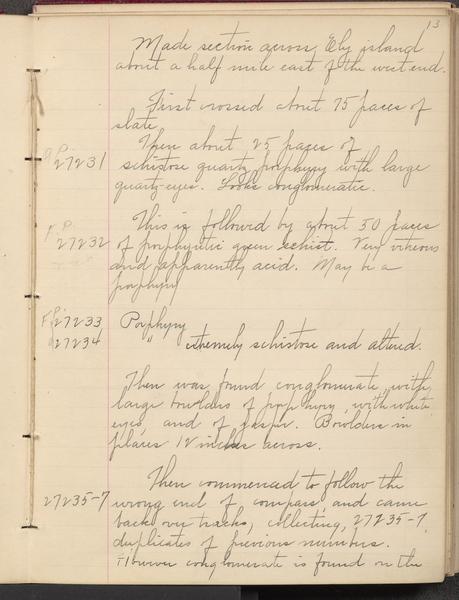 13
Made section across Ely island
about a half mile east of the west end.
First crossed about 75 paces of
slate
Then about 25 paces of
27231 schistose quartz porphyry with large
quartz-eyes. Looks conglomeratic.
This is followed by about 50 paces
27232 of porphyritic green schist. Very vitreous
and apparently acid. May be a
porphyry
27233 Porphyry
27234 " extremely schistose and altered.
Then was found conglomerate with
large bowlders of porphyry, with white
eyes, and of jasper. Bowlders in
places 12 inches across.
Then commenced to follow the
27235-7 wrong end of compass, and came
back over tracks, collecting, 27235-7,
duplicates of previous numbers.
However conglomerate is found on the